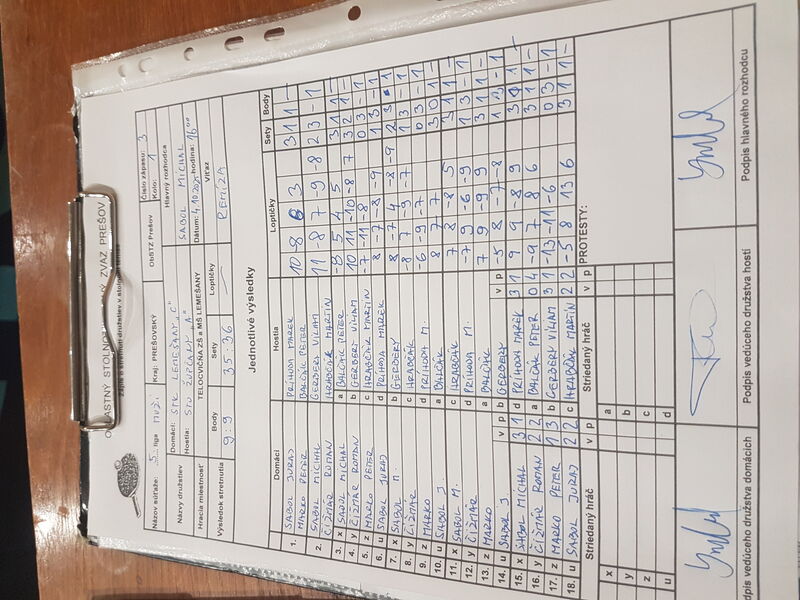 OBLASTNÝ STOLNOTENISOVÝ ZVÄZ PREŠOV
Zápis o stretnutí družstiev v stolnom tenise
Názov súťaže: 5. liga MUŽI Kraj: PREŠOVSKÝ ObSTZ Prešov Číslo zápasu: 3
Kolo: 1
Názvy družstiev Domáci: STK LEMEŠANY „C“ Hlavný rozhodca
Hostia: STO ŽUPČANY „A“ SABOL MICHAL
Hracia miestnosť TELOCVIČŇA ZŠ a MŠ LEMEŠANY Dátum: 4.10.2025 hodina: 16:00
Výsledok stretnutia Body Sety Loptičky Víťaz
9:9 35:36 — REMÍZA
Jednotlivé výsledky
Domáci Hostia Loptičky Sety Body
1. SABOL JURAJ PRÍHODA MAREK
MARKO PETER BALČÁK PETER 10 -8 6 3 3 1 1 –
2. SABOL MICHAL GERBERY VILIAM
ČIŽMÁR ROMAN HRABČÁK MARTIN 11 -8 7 -9 -8 2 3 – 1
3. x SABOL MICHAL a BALČÁK PETER -8 5 4 5 3 1 1 –
4. y ČIŽMÁR ROMAN b GERBERY VILIAM 10 11 -10 -8 7 3 2 1 –
5. z MARKO PETER c HRABČÁK MARTIN -7 -11 -8 0 3 – 1
6. u SABOL JURAJ d PRÍHODA MAREK 8 -7 -8 -9 1 3 – 1
7. x SABOL M. b GERBERY 8 -7 4 -8 -9 2 3 – 1
8. y ČIŽMÁR c HRABČÁK -8 7 -9 -7 1 3 – 1
9. z MARKO d PRÍHODA M. -6 -9 -7 0 3 – 1
10. u SABOL J. a BALČÁK 8 7 7 3 0 1 –
11. x SABOL M. c HRABČÁK 7 8 -8 5 3 1 1 –
12. y ČIŽMÁR d PRÍHODA M. -7 9 -6 -9 1 3 – 1
13. z MARKO a BALČÁK 7 9 -9 9 3 1 1 –
14. u SABOL J b GERBERY -5 8 -7 -8 1 3 – 1
v p v p
15. x SABOL MICHAL 3 1 d PRÍHODA MAREK 3 1 9 9 -8 9 3 1 1 –
16. y ČIŽMÁR ROMAN 2 2 a BALČÁK PETER 0 4 -9 7 8 6 3 1 1 –
17. z MARKO PETER 1 3 b GERBERY VILIAM 3 1 -13 -11 -6 0 3 – 1
18. u SABOL JURAJ 2 2 c HRABČÁK MARTIN 2 2 -5 8 13 6 3 1 1 –
Striedaný hráč v p Striedaný hráč v p PROTESTY:
x a
y b
z c
u d
Podpis vedúceho družstva domácich Podpis vedúceho družstva hostí Podpis hlavného rozhodcu